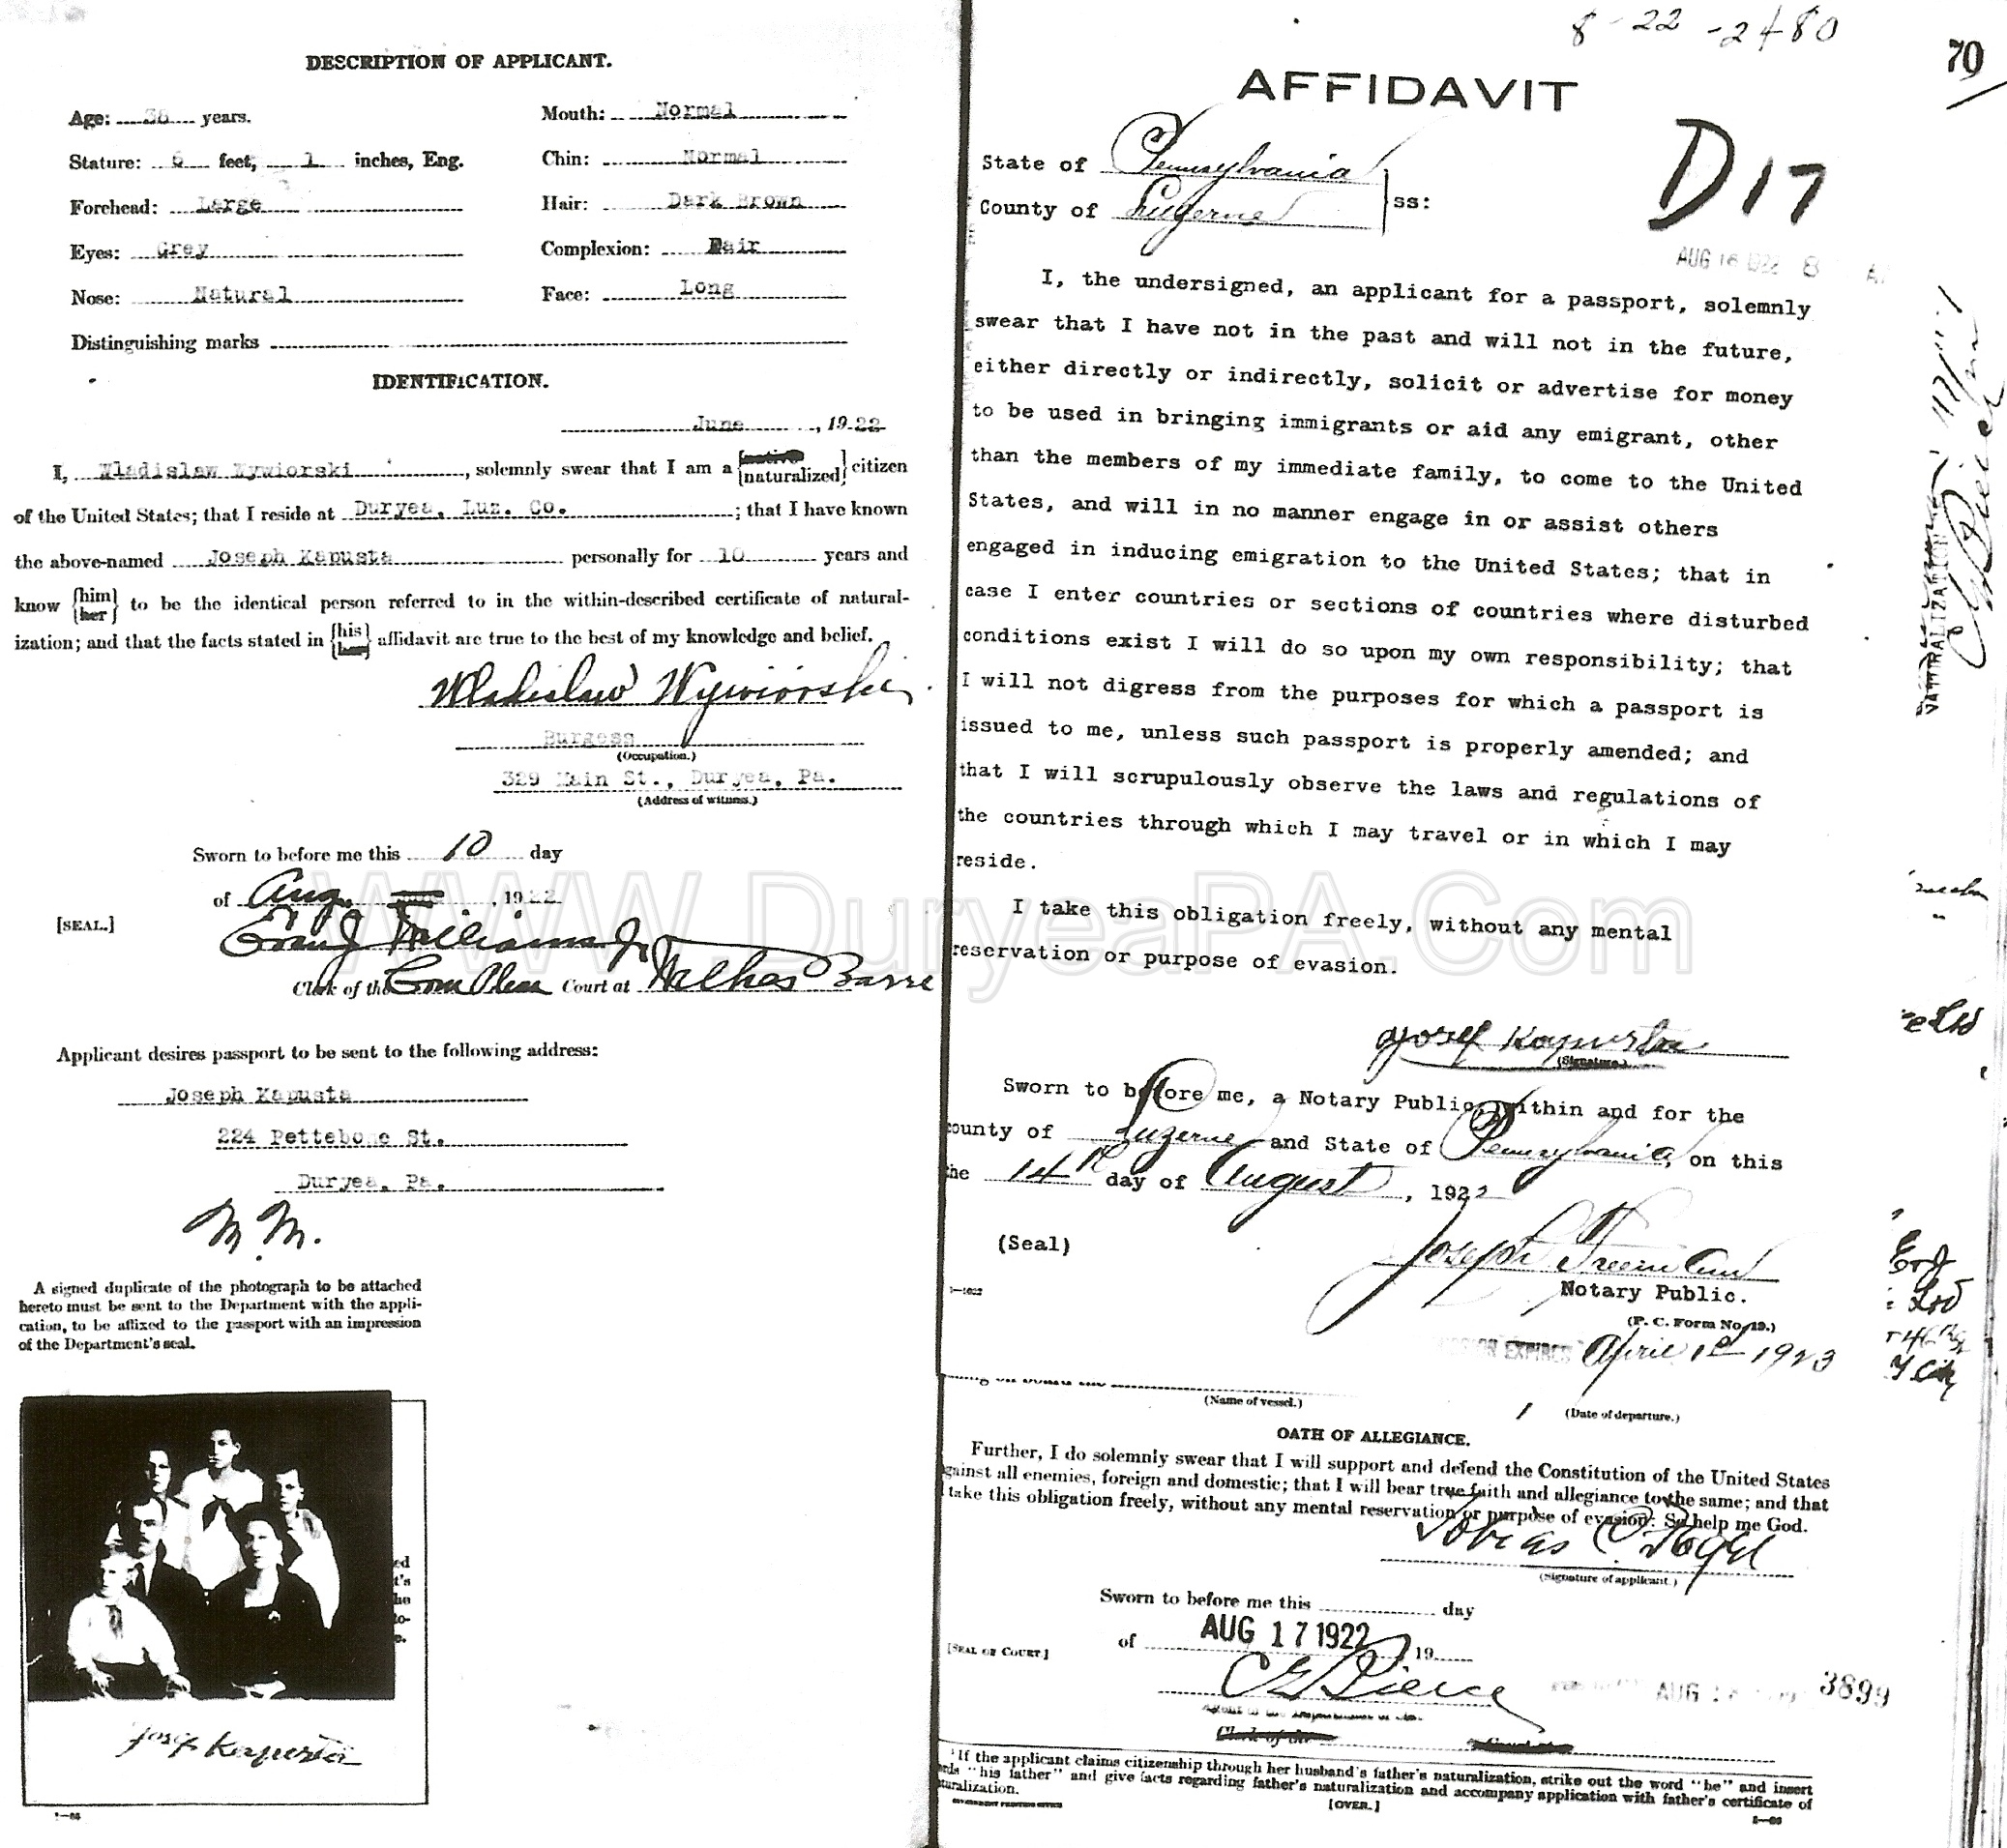 DESCRIPTION OF APPLICANT.
Age: 38 years.
Mouth: Normal
Stature: feet, 1 inches, Eng.
Chin: Normal
Forehead: Large
Hair: Dark Brown
Eyes: Grey
Complexion: Fair
Nose: Natural
Face: Long
Distinguishing marks
IDENTIFICATION.
June , 1922
I, Wladislaw Wywiorski , solemnly swear that I am a {native naturalized} citizen
of the United States; that I reside at Duryea, Luz. Co. ; that I have known
the above-named Joseph Kapusta personally for 10 years and
know {him her} to be the identical person referred to in the within-described certificate of natural-
ization; and that the facts stated in {his her} affidavit are true to the best of my knowledge and belief.
Wladislaw Wywiorski
Burgess
(Occupation.)
329 Main St., Duryea, Pa.
(Address of witness.)
Sworn to before me this 10 day
of Aug. , 1922
[SEAL.]
Williams Jr
Clerk of the Com Pleas Court at Wilkes Barre
Applicant desires passport to be sent to the following address:
Joseph Kapusta
224 Pettebone St.
Duryea, Pa.
M. M.
A signed duplicate of the photograph to be attached
hereto must be sent to the Department with the appli-
cation, to be affixed to the passport with an impression
of the Department's seal.
ed
t's
he
to-
e.
Josef Kapusta
8-22-2480
70
AFFIDAVIT
D17
State of Pennsylvania
ss:
County of Luzerne
AUG 16 1922
I, the undersigned, an applicant for a passport, solemnly
swear that I have not in the past and will not in the future,
either directly or indirectly, solicit or advertise for money
to be used in bringing immigrants or aid any emigrant, other
than the members of my immediate family, to come to the United
States, and will in no manner engage in or assist others
engaged in inducing emigration to the United States; that in
case I enter countries or sections of countries where disturbed
conditions exist I will do so upon my own responsibility; that
I will not digress from the purposes for which a passport is
issued to me, unless such passport is properly amended; and
that I will scrupulously observe the laws and regulations of
the countries through which I may travel or in which I may
reside.
I take this obligation freely, without any mental
reservation or purpose of evasion.
WWW.DuryeaPA.Com
Josef Kapusta
(Signature.)
Sworn to before me, a Notary Public, within and for the
county of Luzerne and State of Pennsylvania, on this
the 14th day of August , 1922
(Seal)
Joseph
Notary Public.
1—1022
(P. C. Form No. 19.)
EXPIRES April 1st 1923
(Name of vessel.)
(Date of departure.)
OATH OF ALLEGIANCE.
Further, I do solemnly swear that I will support and defend the Constitution of the United States
against all enemies, foreign and domestic; that I will bear true faith and allegiance to the same; and that
I take this obligation freely, without any mental reservation or purpose of evasion: So help me God.
Tobias
(Signature of applicant.)
Sworn to before me this day
of AUG 17 1922 , 19
[SEAL OF COURT.]
C E Pierce
Clerk of the
AUG
3899
1 If the applicant claims citizenship through her husband's father's naturalization, strike out the word "he" and insert
"his father" and give facts regarding father's naturalization and accompany application with father's certificate of
naturalization.
GOVERNMENT PRINTING OFFICE
[OVER.]
NATURALIZATION